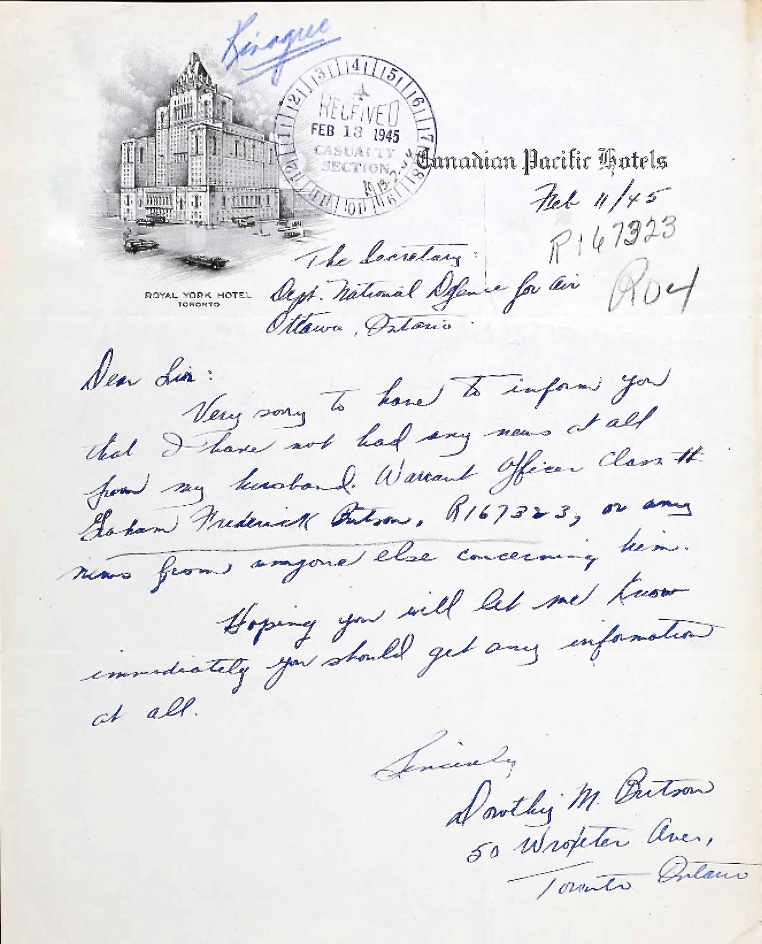 Kinague
RECEIVED
FEB 13 1945
CASUALTY
SECTION
Canadian Pacific Hotels
Feb 11/45
R167323
R04
ROYAL YORK HOTEL
TORONTO
The Secretary:
Dept. National Defence for Air
Ottawa, Ontario.
Dear Sir:
Very sorry to have to inform you
that I have not had any news at all
from my husband. Warrant Officer Class II
Graham Frederick Butson, R167323, or any
news from anyone else concerning him.
Hoping you will let me know
immediately you should get any information
at all.
Sincerely
Dorothy M. Butson
50 Wroxeter Ave.,
Toronto Ontario